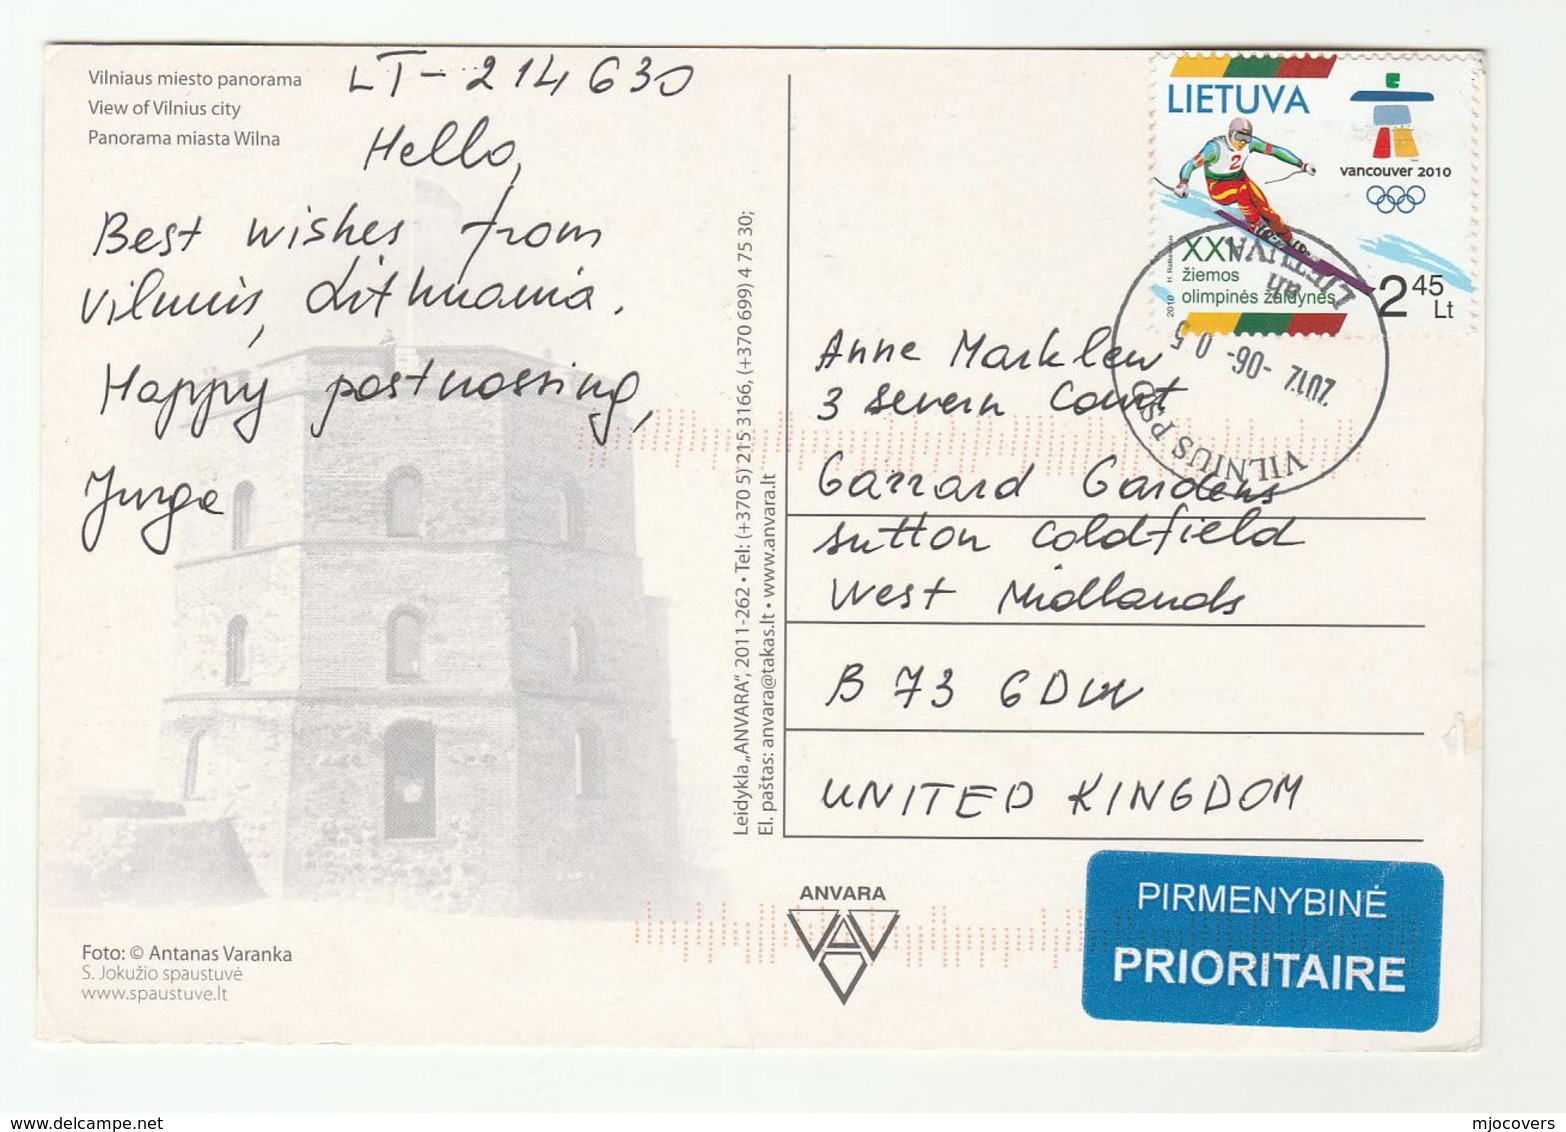 Vilniaus miesto panorama
View of Vilnius city
Panorama miasta Wilna
LT-214630
Hello,
Best wishes from
Vilnius, Lithuania.
Happy postcrossing,
Jurga
Foto: © Antanas Varanka
S. Jokužio spaustuvė
www.spaustuve.lt
Leidykla „ANVARA“, 2011-262 • Tel: (+370 5) 215 3166, (+370 699) 4 75 30;
El. paštas: anvara@takas.lt • www.anvara.lt
LIETUVA
vancouver 2010
2
XXI
žiemos
olimpinės žaidynės
2010 H.
2 45 Lt
LIETUVA
2012 -06- 05
VILNIUS
Anne Marklew
3 Severn Court
Garrard Gardens
Sutton Coldfield
West Midlands
B 73 6DW
UNITED KINGDOM
ANVARA
PIRMENYBINĖ
PRIORITAIRE
mjocovers